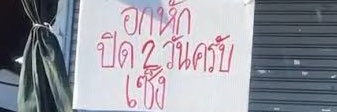 อกหัก
ปิด 2 วันครับ
เซ็ง